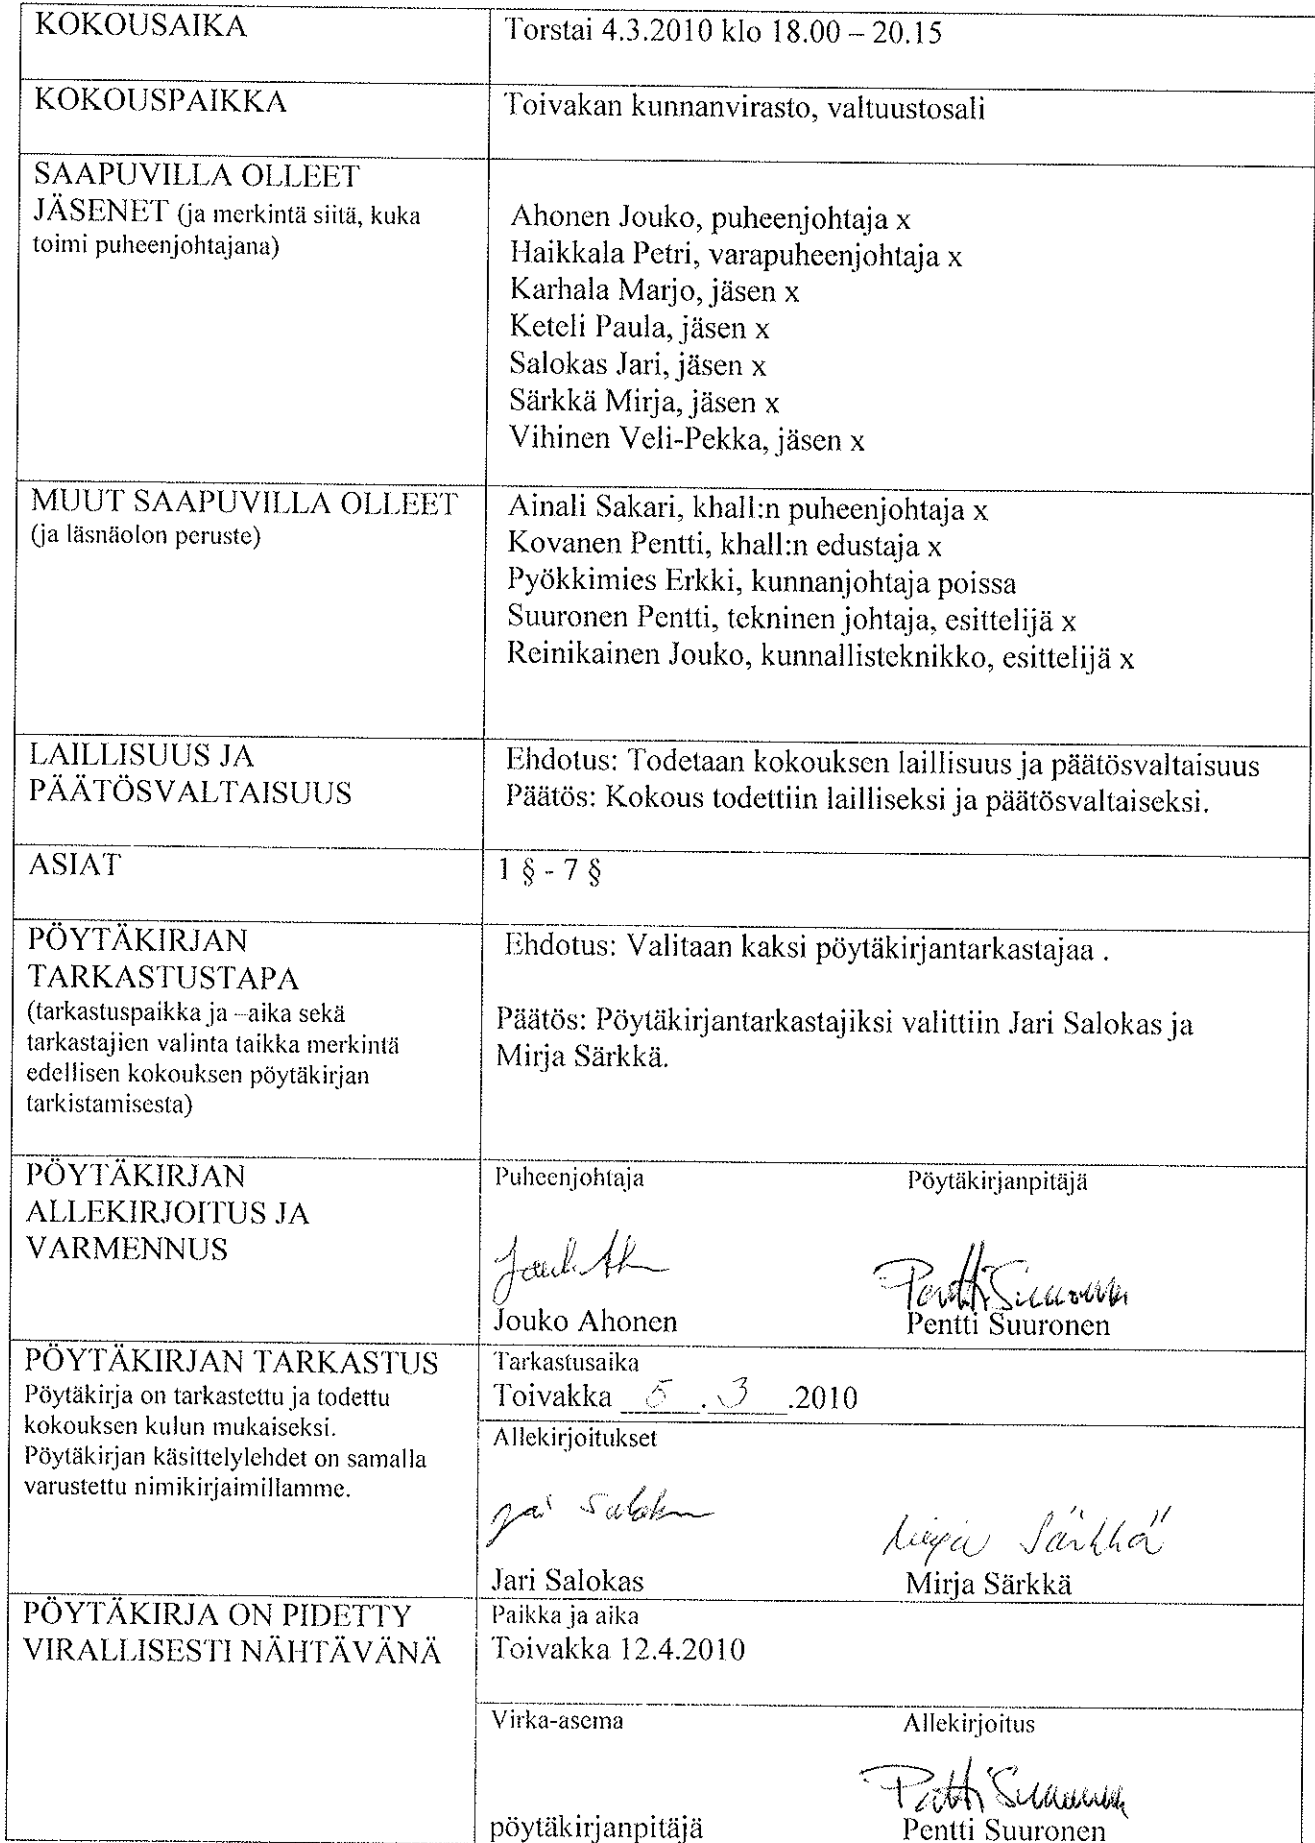 KOKOUSAIKA
Torstai 4.3.2010 klo 18.00 – 20.15
KOKOUSPAIKKA
Toivakan kunnanvirasto, valtuustosali
SAAPUVILLA OLLEET
JÄSENET (ja merkintä siitä, kuka
toimi puheenjohtajana)
Ahonen Jouko, puheenjohtaja x
Haikkala Petri, varapuheenjohtaja x
Karhala Marjo, jäsen x
Keteli Paula, jäsen x
Salokas Jari, jäsen x
Särkkä Mirja, jäsen x
Vihinen Veli-Pekka, jäsen x
MUUT SAAPUVILLA OLLEET
(ja läsnäolon peruste)
Ainali Sakari, khall:n puheenjohtaja x
Kovanen Pentti, khall:n edustaja x
Pyökkimies Erkki, kunnanjohtaja poissa
Suuronen Pentti, tekninen johtaja, esittelijä x
Reinikainen Jouko, kunnallisteknikko, esittelijä x
LAILLISUUS JA
PÄÄTÖSVALTAISUUS
Ehdotus: Todetaan kokouksen laillisuus ja päätösvaltaisuus
Päätös: Kokous todettiin lailliseksi ja päätösvaltaiseksi.
ASIAT
1 § - 7 §
PÖYTÄKIRJAN
TARKASTUSTAPA
(tarkastuspaikka ja –aika sekä
tarkastajien valinta taikka merkintä
edellisen kokouksen pöytäkirjan
tarkistamisesta)
Ehdotus: Valitaan kaksi pöytäkirjantarkastajaa .
Päätös: Pöytäkirjantarkastajiksi valittiin Jari Salokas ja
Mirja Särkkä.
PÖYTÄKIRJAN
ALLEKIRJOITUS JA
VARMENNUS
Puheenjohtaja Pöytäkirjanpitäjä
Pentti Suuronen
Jouko Ahonen Pentti Suuronen
PÖYTÄKIRJAN TARKASTUS
Pöytäkirja on tarkastettu ja todettu
kokouksen kulun mukaiseksi.
Pöytäkirjan käsittelylehdet on samalla
varustettu nimikirjaimillamme.
Tarkastusaika
Toivakka 5 . 3 .2010
Allekirjoitukset
Jari Salokas Mirja Särkkä
Jari Salokas Mirja Särkkä
PÖYTÄKIRJA ON PIDETTY
VIRALLISESTI NÄHTÄVÄNÄ
Paikka ja aika
Toivakka 12.4.2010
Virka-asema Allekirjoitus
Pentti Suuronen
pöytäkirjanpitäjä Pentti Suuronen